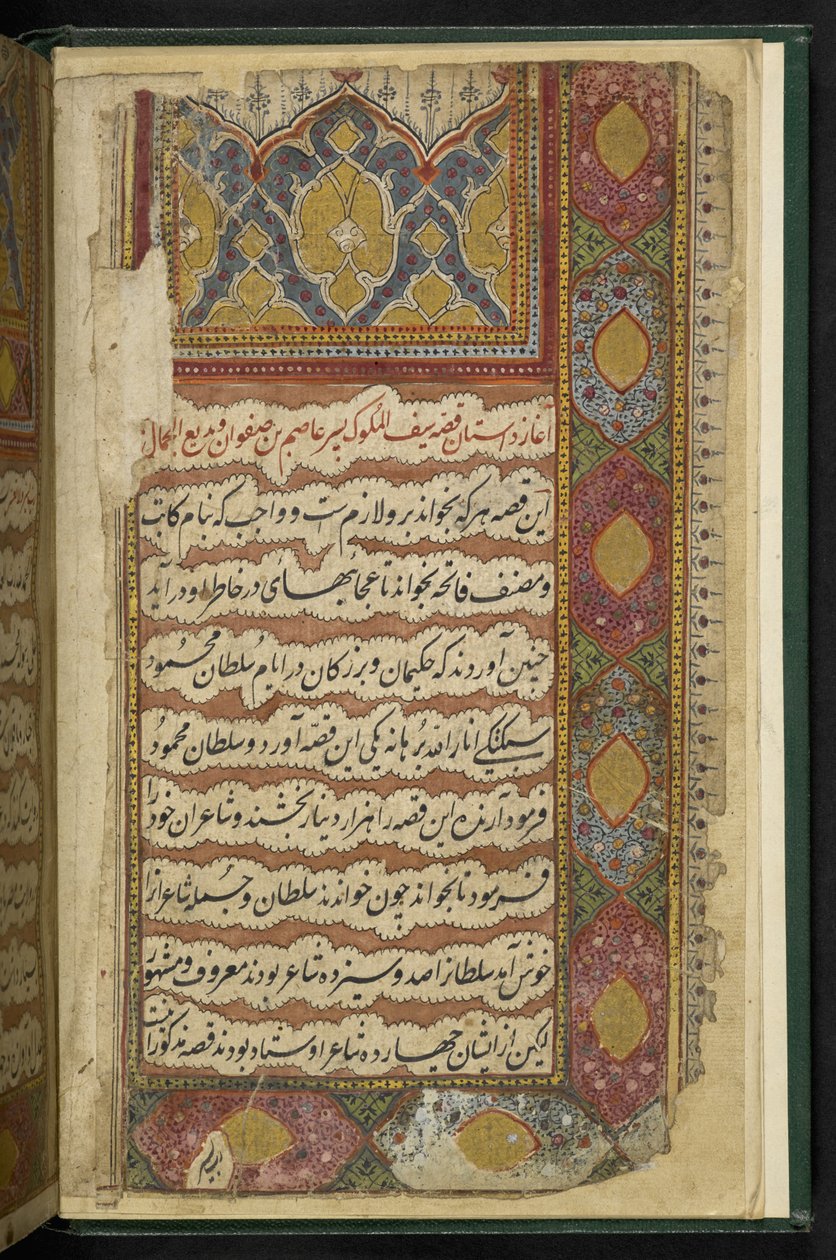 آغاز داستان قصه سیف الملوک پسر عاصم بن صفوان و بدیع الجمال
این قصه هر که بخواند برو لازم ست و واجب که بنام کاتب
و مصنف فاتحه بخواند تا عجائبهائی در خاطر او در آید
چنین آوردند که حکیمان و بزرکان در ایام سلطان محمود
سبکتکی انار الله برهانه یکی این قصه آورد و سلطان محمود
فرمود آرنده این قصه را هزار دینار بخشند و شاعران خود را
فرمود تا بخواند چون خواندند سلطان و جمله شاعرانرا
خوش آمد سلطانرا صد و سیزده شاعر بودند معروف و مشهور
لیکن از ایشان چهارده شاعر اوستاد بودند قصه مذکور